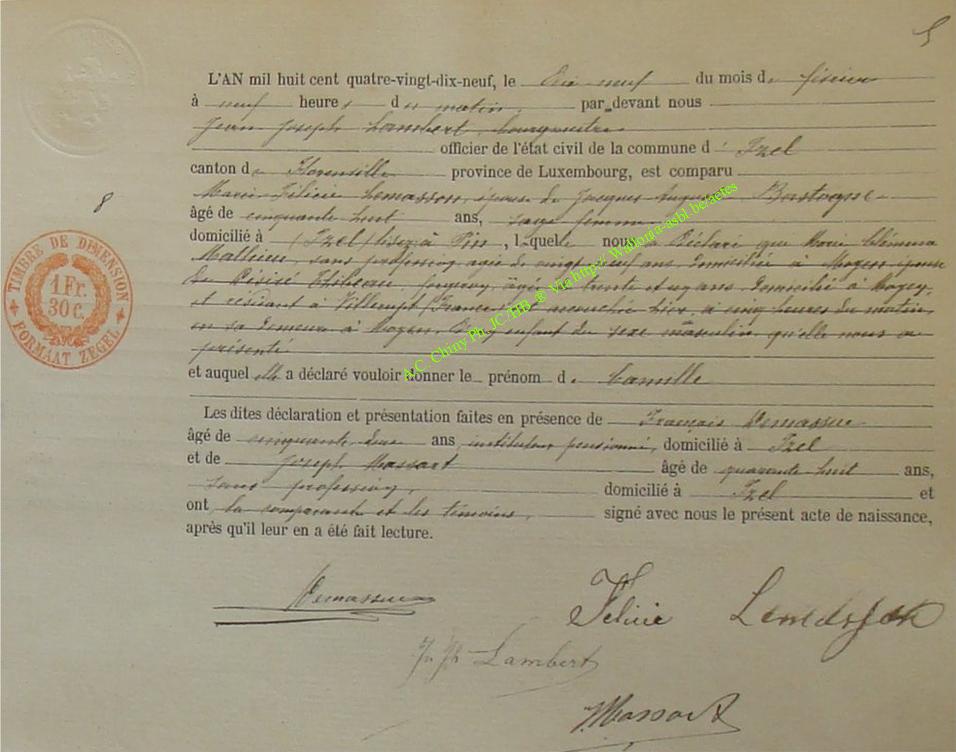 5
L'AN mil huit cent quatre-vingt-dix-neuf, le dix neuf du mois de février
à neuf heures du matin, par-devant nous
Jean Joseph Lambert, bourgmestre
officier de l'état civil de la commune d' Izel
canton de Florenville province de Luxembourg, est comparu
Marie Félicie Lemasson, épouse de Jacques Auguste Bastogne
âgé de cinquante huit ans, sage femme
domicilié à (Izel) lisez à Pin, laquelle nous a déclaré que Marie Clémma
Mathieu, sans profession, agée de vingt neuf ans domiciliée à Moyen, épouse
de Désiré Thibeau, âgé de trente et un ans, domicilié à Moyen,
et résidant à Villerupt (France) est accouchée hier, à cinq heures du matin,
en sa demeure à Moyen, d'un enfant du sexe masculin qu'elle nous a
présenté
et auquel elle a déclaré vouloir donner le prénom de Camille
Les dites déclaration et présentation faites en présence de François Demasseu
âgé de cinquante deux ans, instituteur pensionné, domicilié à Izel
et de Joseph Massart âgé de quarante huit ans,
sans profession, domicilié à Izel et
ont la comparante et les témoins, signé avec nous le présent acte de naissance,
après qu'il leur en a été fait lecture.
8
TIMBRE DE DIMENSION
1 Fr.
30 C.
FORMAAT ZEGEL
A.C. Chiny Ph. JC /HB ® Via http:// wallonia-asbl.be/actes
Demasseu
Félicie
Lambert
Massart